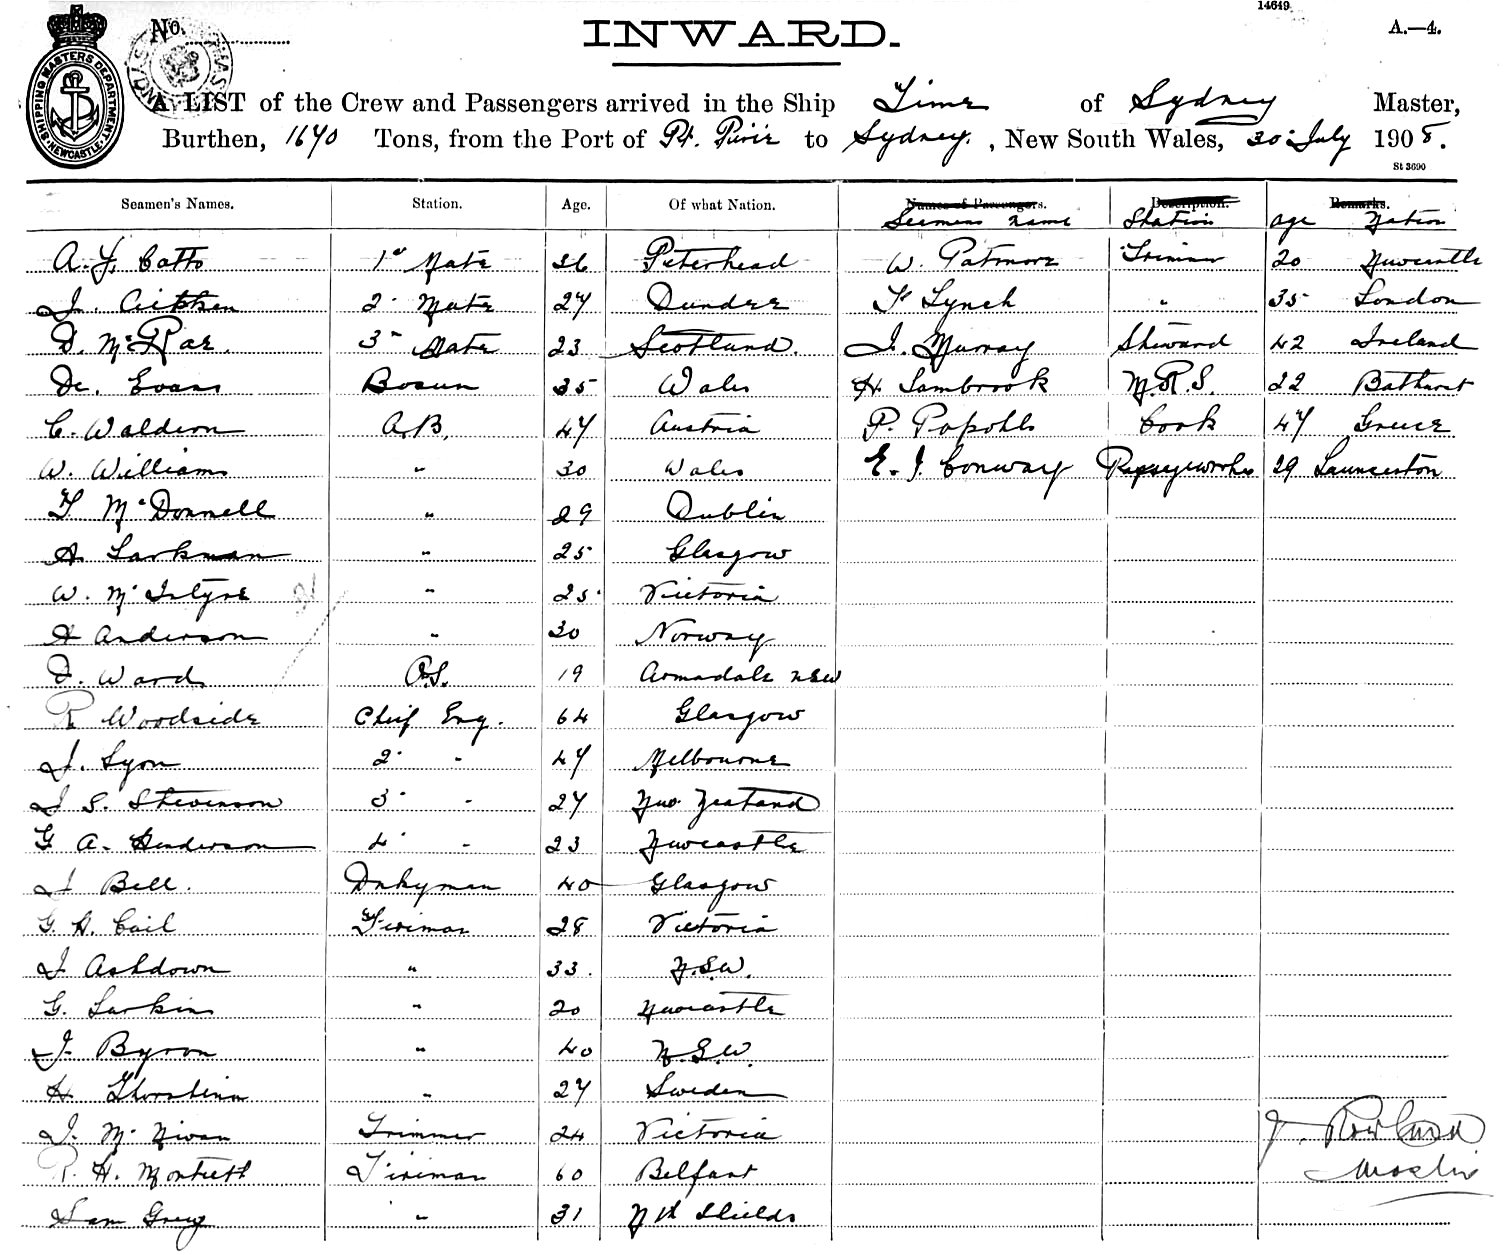 14649
No.
INWARD.
A.—4.
SHIPPING MASTERS DEPARTMENT NEWCASTLE
A LIST of the Crew and Passengers arrived in the Ship Time of Sydney Master,
Burthen, 1640 Tons, from the Port of Pt. Pirie to Sydney, New South Wales, 30 July 1908.
St 3690
Seamen's Names. Station. Age. Of what Nation. Names of Passengers. Description. Remarks.
Seamens name Station age Nation
A. J. Catto 1st Mate 36 Peterhead W. Patmore 20 Newcastle
J. Aitken 2 Mate 27 Dundee Lynch " 35 London
D. McRae. 3 Mate 23 Scotland. J. Murray Steward 42 Ireland
Evans Bosun 35 Wales H. Sambrook M.R.S. 22 Bathurst
C. Waldron A.B. 47 Austria P. Cook 47 Greece
W. Williams " 30 Wales E. J. Conway 29 Launceston
T McDonnell " 29 Dublin
A Larkman " 25 Glasgow
W. McIntyre " 25 Victoria
A Anderson " 30 Norway
D. Ward O.S. 19 Armadale NSW
R Woodside Chief Eng. 64 Glasgow
J. Lyon 2 " 47 Melbourne
J S. Stevenson 3 " 27 New Zealand
G A. Henderson 4 " 23 Newcastle
J Bell. Dnkyman 40 Glasgow
G. H. Cail Fireman 28 Victoria
J Ashdown " 33. N.S.W.
G. Larkin " 20 Newcastle
J. Byron " 40 N.S.W.
H. " 27 Sweden
J. McNiven Trimmer 24 Victoria
R. H. Monteith Fireman 60 Belfast
Sam Greig " 31 Nth Shields
J. Rowland
Master